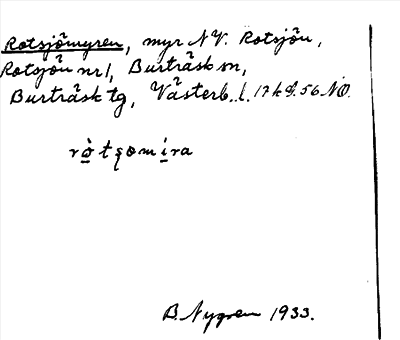 Rotsjömyren, myr N.V. Rotsjön,
Rotsjön nr 1, Burträsk sn,
Burträsk tg, Västerb. l. 17 k S. 56 N.O.
B. Nygren 1933.